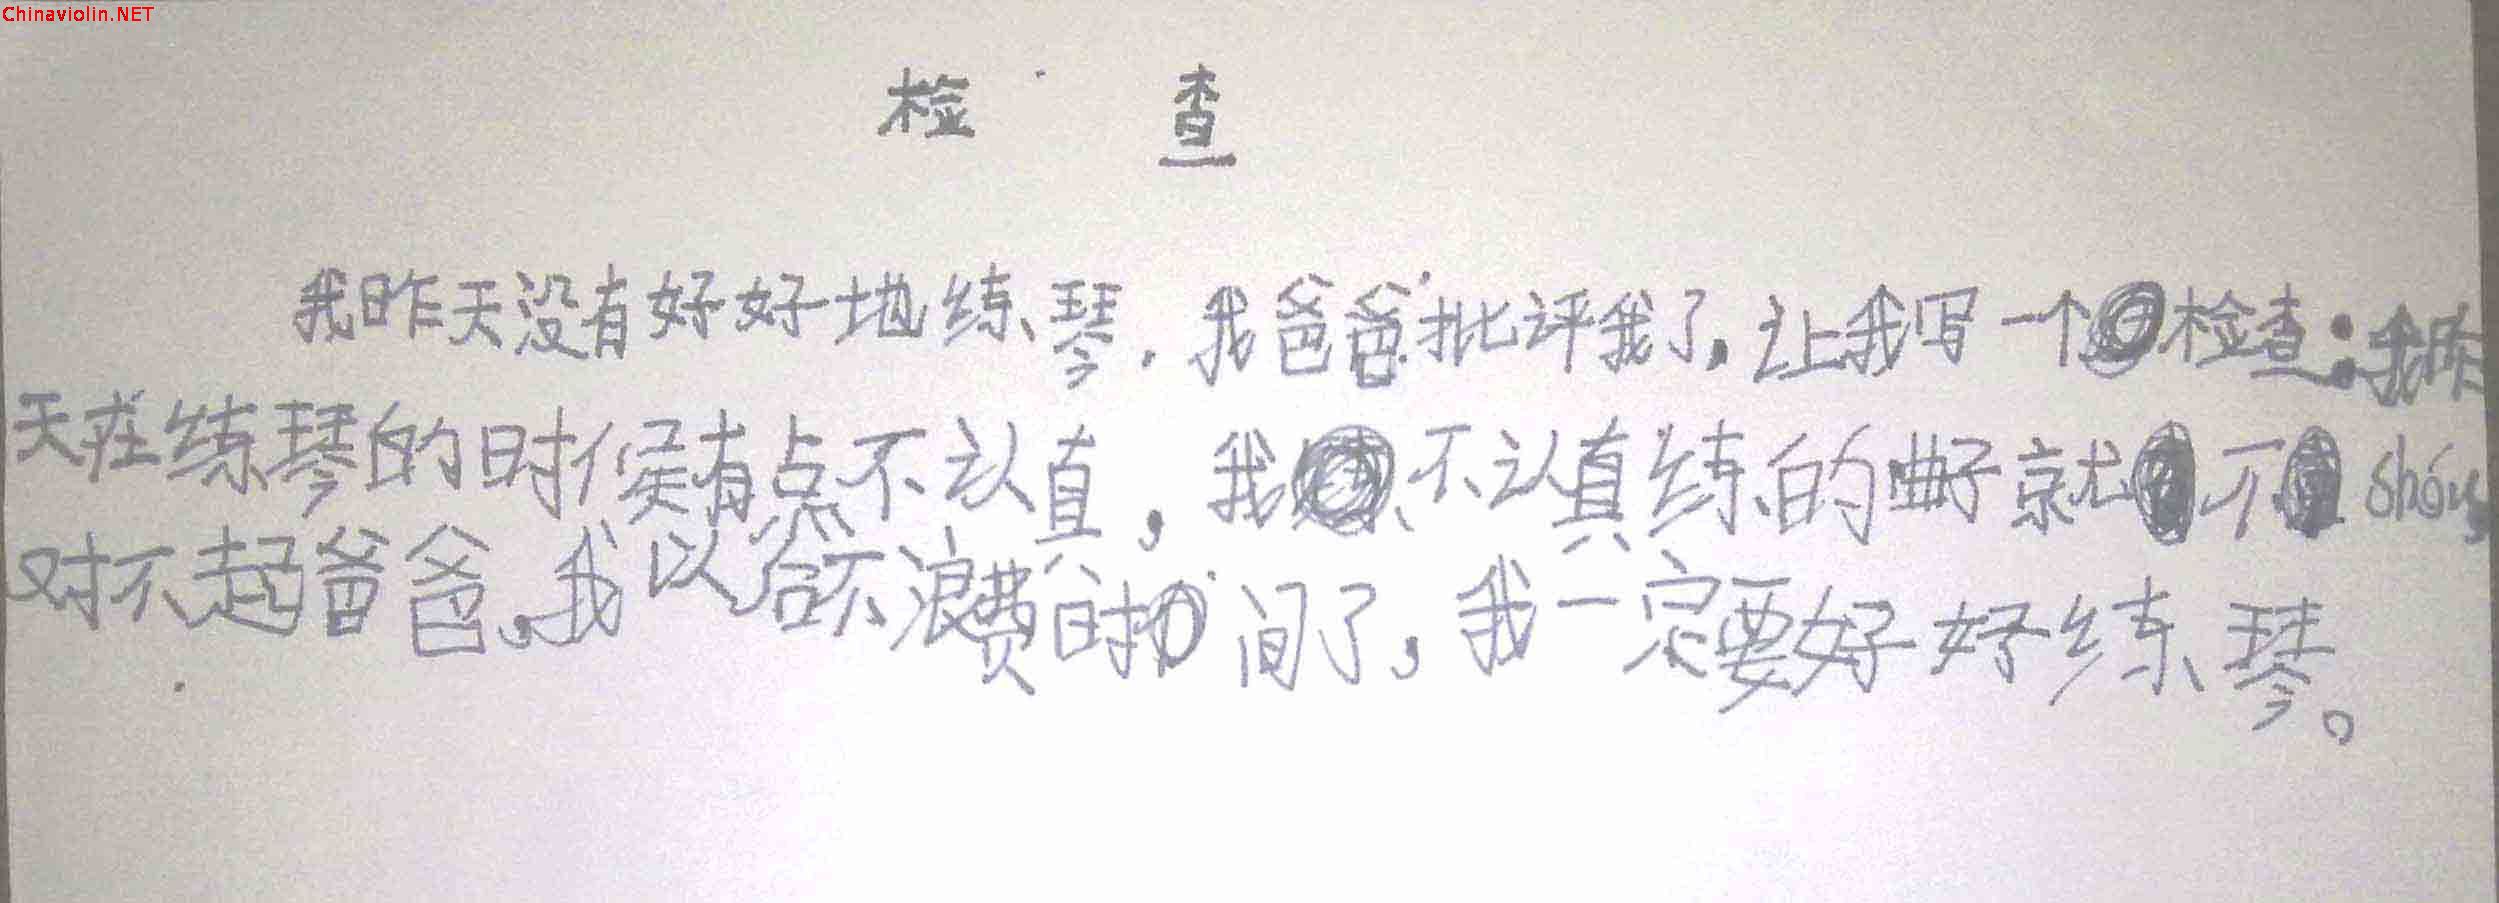 Chinaviolin.NET
检 查
我昨天没有好好地练琴，我爸爸批评我了，让我写一个检查：我昨
天在练琴的时候有点不认真，我不认真练的曲子就不shóu，
对不起爸爸，我以后不浪费时间了，我一定要好好练琴。